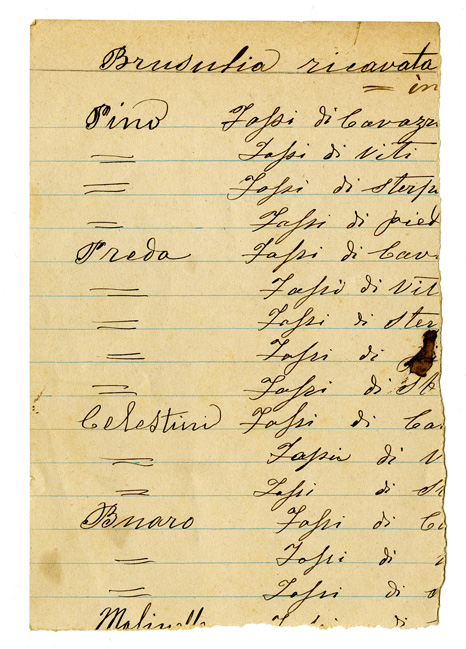 Brusulia ricavata
= in
Pino Fassi di Cavazz
= Fassi di viti
= Fassi di sterpa
= Fassi di pied
Freda Fassi di Cav
= Fassi di vit
= Fassi di ster
= Fassi di
= Fassi di
Celestini Fassi di Ca
= Fassi di v
= Fassi di
Buaro Fassi di
= Fassi di
= Fassi di